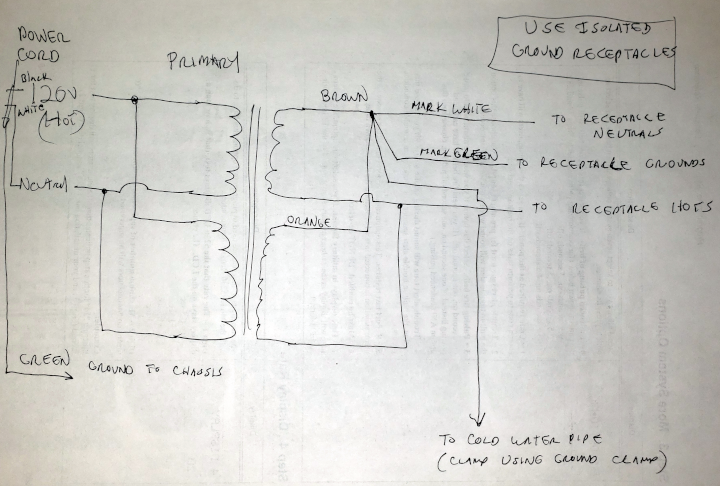 POWER
CORD
Black
120V
WHITE
(Hot)
Neutral
GREEN GROUND TO CHASSIS
PRIMARY
USE ISOLATED
GROUND RECEPTACLES
BROWN
MARK WHITE
TO RECEPTACLE
NEUTRALS
MARK GREEN
TO RECEPTACLE GROUNDS
ORANGE
TO RECEPTACLE HOTS
TO COLD WATER PIPE
(CLAMP USING GROUND CLAMP)